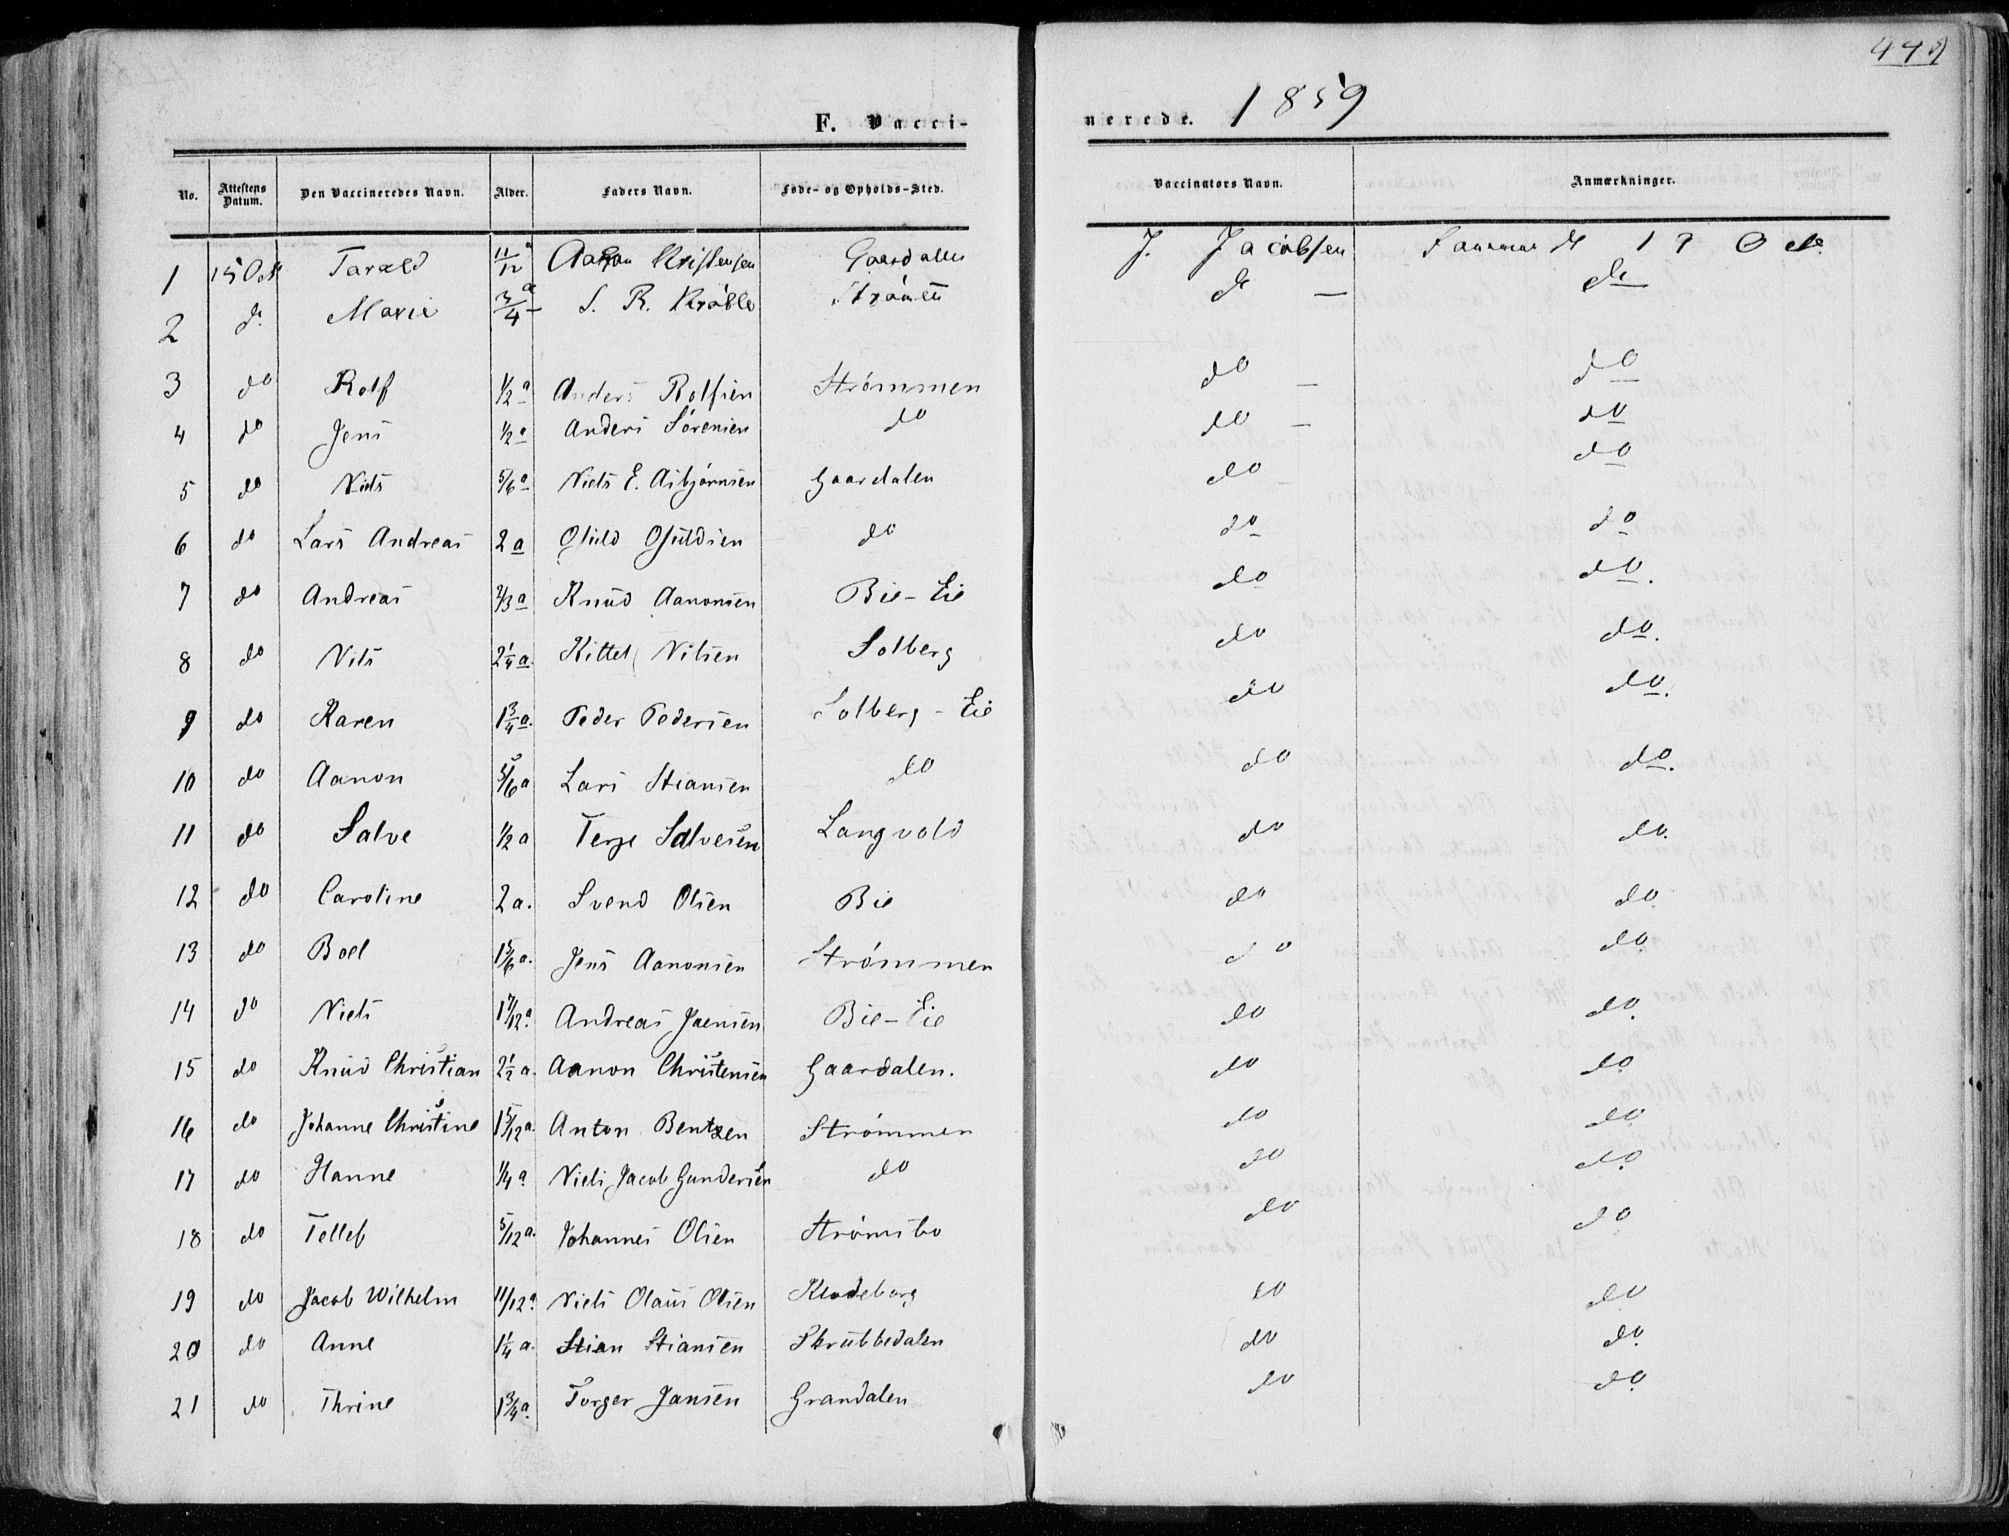 449
F. Vacci-
nerede. 1859
No. Attestens Datum. Den Vaccineredes Navn. Alder. Faders Navn. Føde- og Opholds-Sted. Vaccinators Navn. Anmærkninger.
1 15 Oct Tarald 11/12 a Aanon Kristensen Gaardalen J. Jacobsen 19 Oct.
2 do. Marie 3/4 a S. R. Strømen do — do
3 do Rolf 1/2 a Anders Rolfsen Strømmen do — do
4 do Jens 1/2 a Anders Sørensen do do — do
5 do Niels 5/6 a Niels E. Asbjørnsen Gaardalen do do
6 do Lars Andreas 2 a Osuld Osuldsen do do do
7 do Andreas 2/3 a Knud Aanonsen Bie-Eie do do.
8 do Nils 2 1/4 a. Kittel Nilsen Solberg do do.
9 do Karen 1 3/4 a. Peder Pedersen Solberg-Eie do do.
10 do Aanon 5/6 a Lars Stiansen do do do.
11 do Salve 1/2 a Terje Salvesen Langvold do do.
12 do Caroline 2 a. Svend Olsen Bie do do.
13 do Boel 1 5/6 a. Jens Aanonsen Strømmen do do.
14 do Niels 1 7/12 a. Andreas Jaensen Bie-Eie do do.
15 do Knud Christian 2 1/2 a. Aanon Christensen Gaardalen. do do.
16 do Johanne Christine 1 5/12 a. Anton Bentzen Strømmen do do.
17 do Hanne 1/4 a Niels Jacob Gundersen do do do.
18 do Tellef 5/12 a. Johannes Olsen Strømsbo do do
19 do Jacob Wilhelm 11/12 a. Niels Olaus Olsen Klodeborg do do
20 do Anne 1 1/4 a. Stian Stiansen Skrubbedalen do do.
21 do Thrine 1 3/4 a. Torger Jansen Grandalen do do.